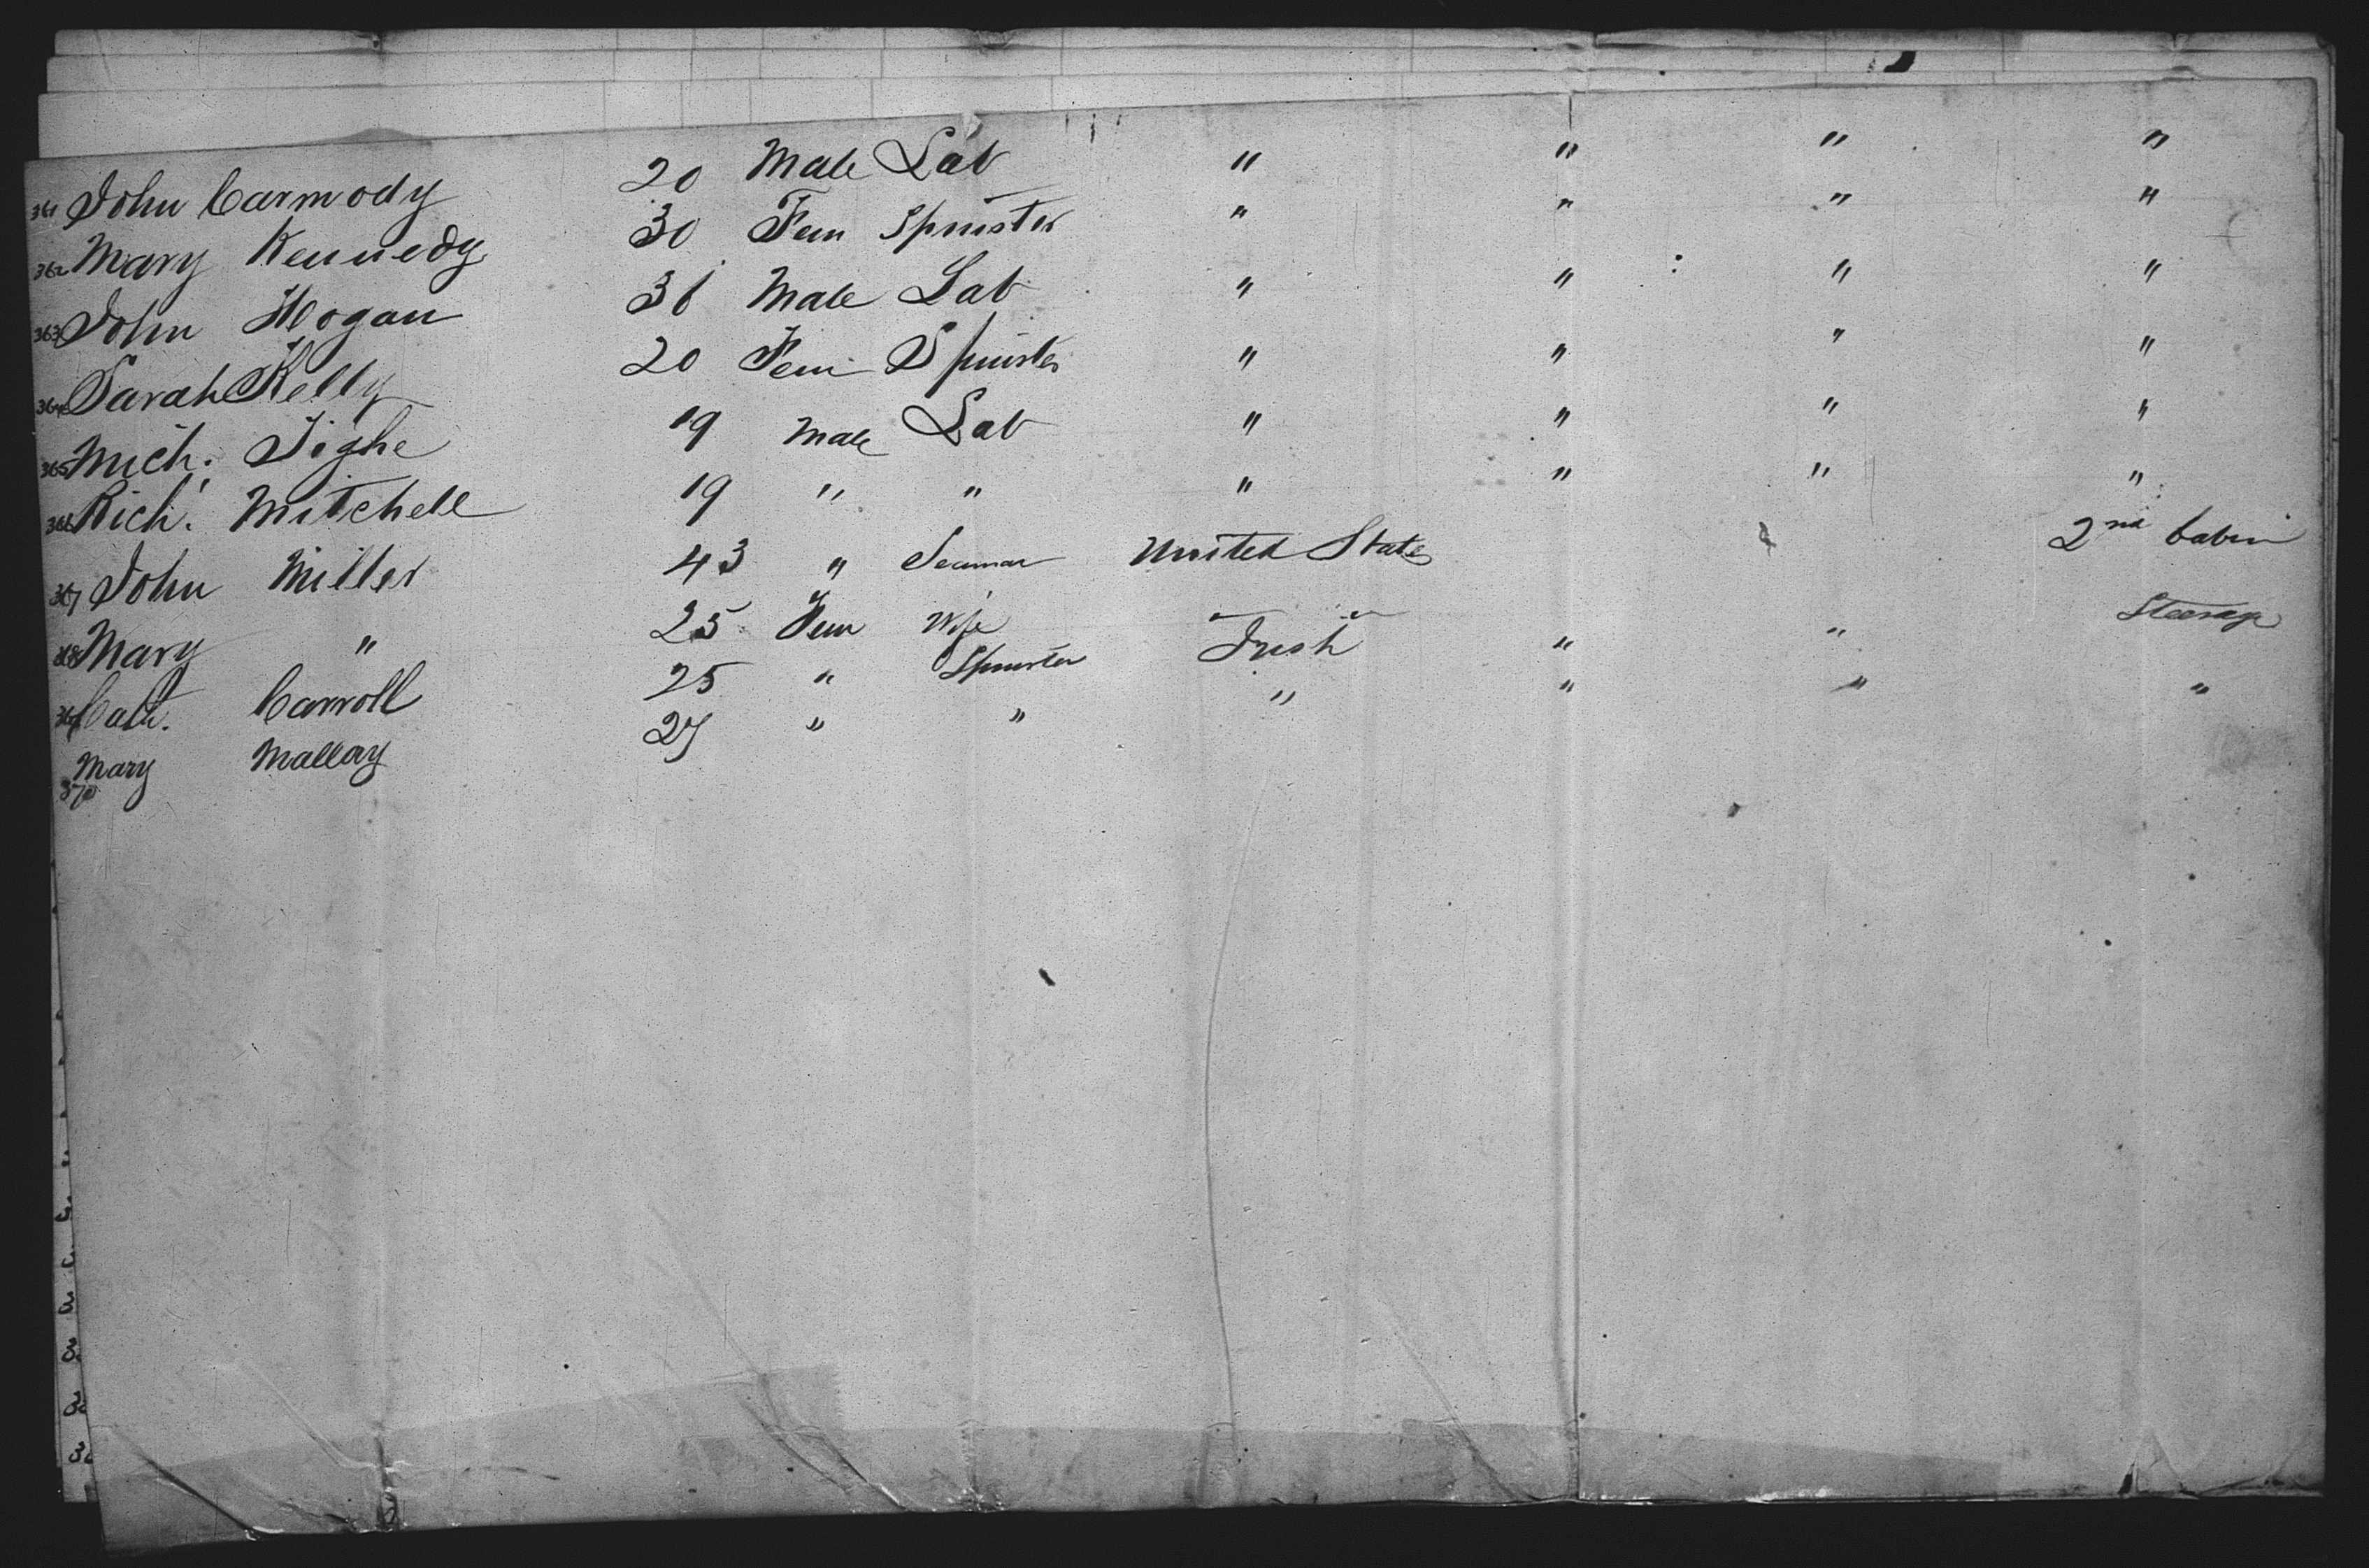 361 John Carmody 20 Male Lab " " " "
362 Mary Kennedy 30 Fem Spinster " " " "
363 John Hogan 36 Male Lab " " " "
364 Sarah Kelly 20 Fem Spinster " " " "
365 Mich. Tighe 19 Male Lab " " " "
366 Rich. Mitchell 19 " " " " " "
367 John Miller 43 " Seaman United States 2nd Cabin
368 Mary " 25 Fem Wife " "
369 Cath. Carroll 25 " Spinster Irish " " Steerage
Mary Mallay 27 " " " " " "
370